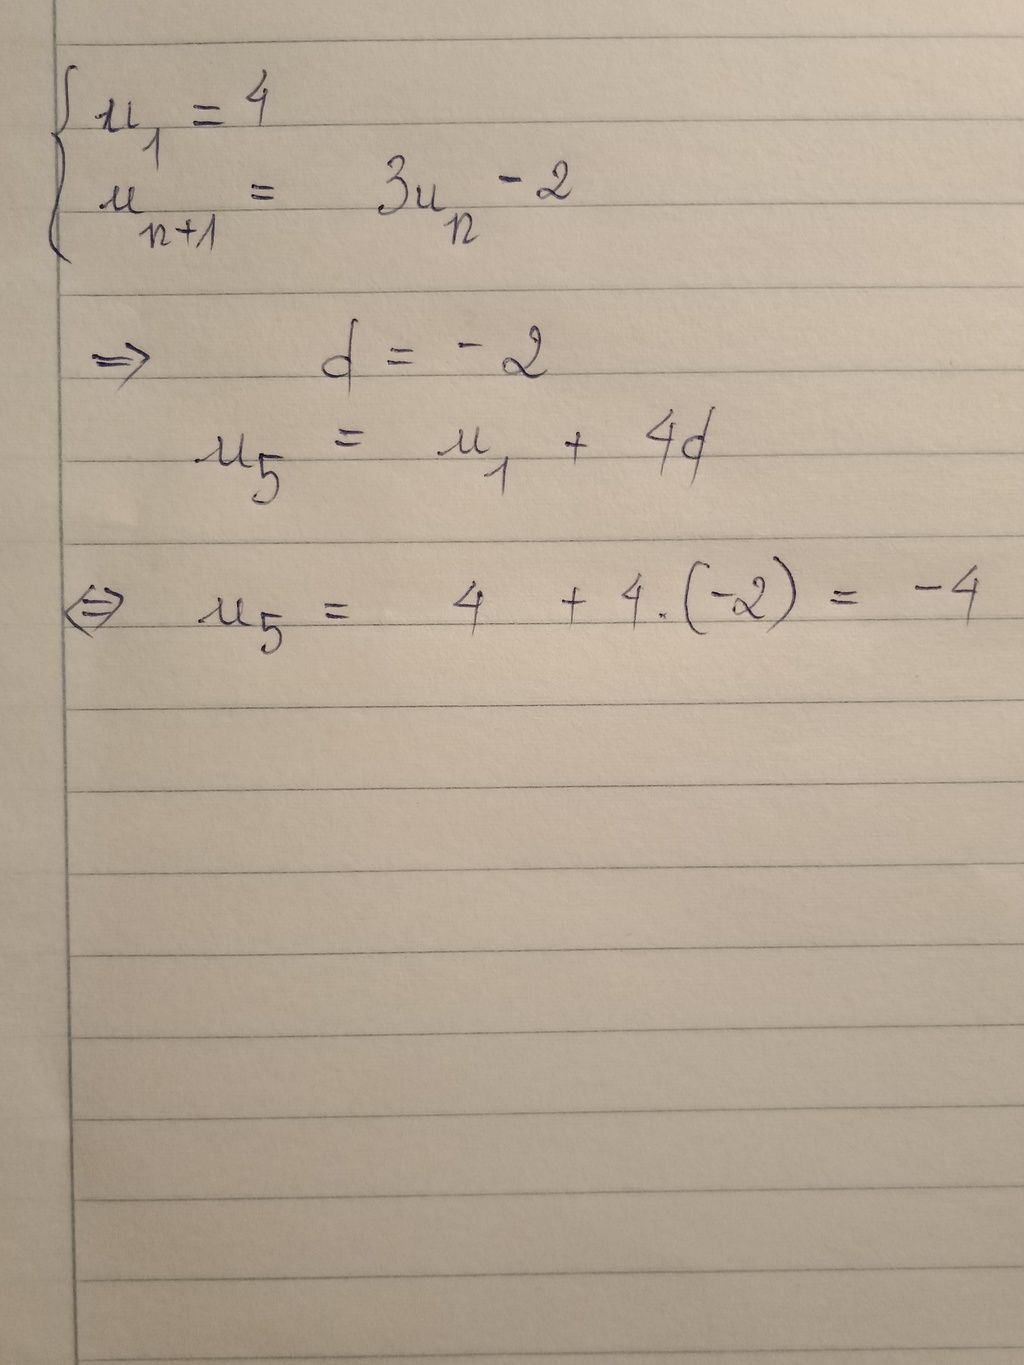 { u₁ = 4
u_{n+1} = 3u_n - 2
⇒ d = -2
u₅ = u₁ + 4d
⇔ u₅ = 4 + 4.(-2) = -4